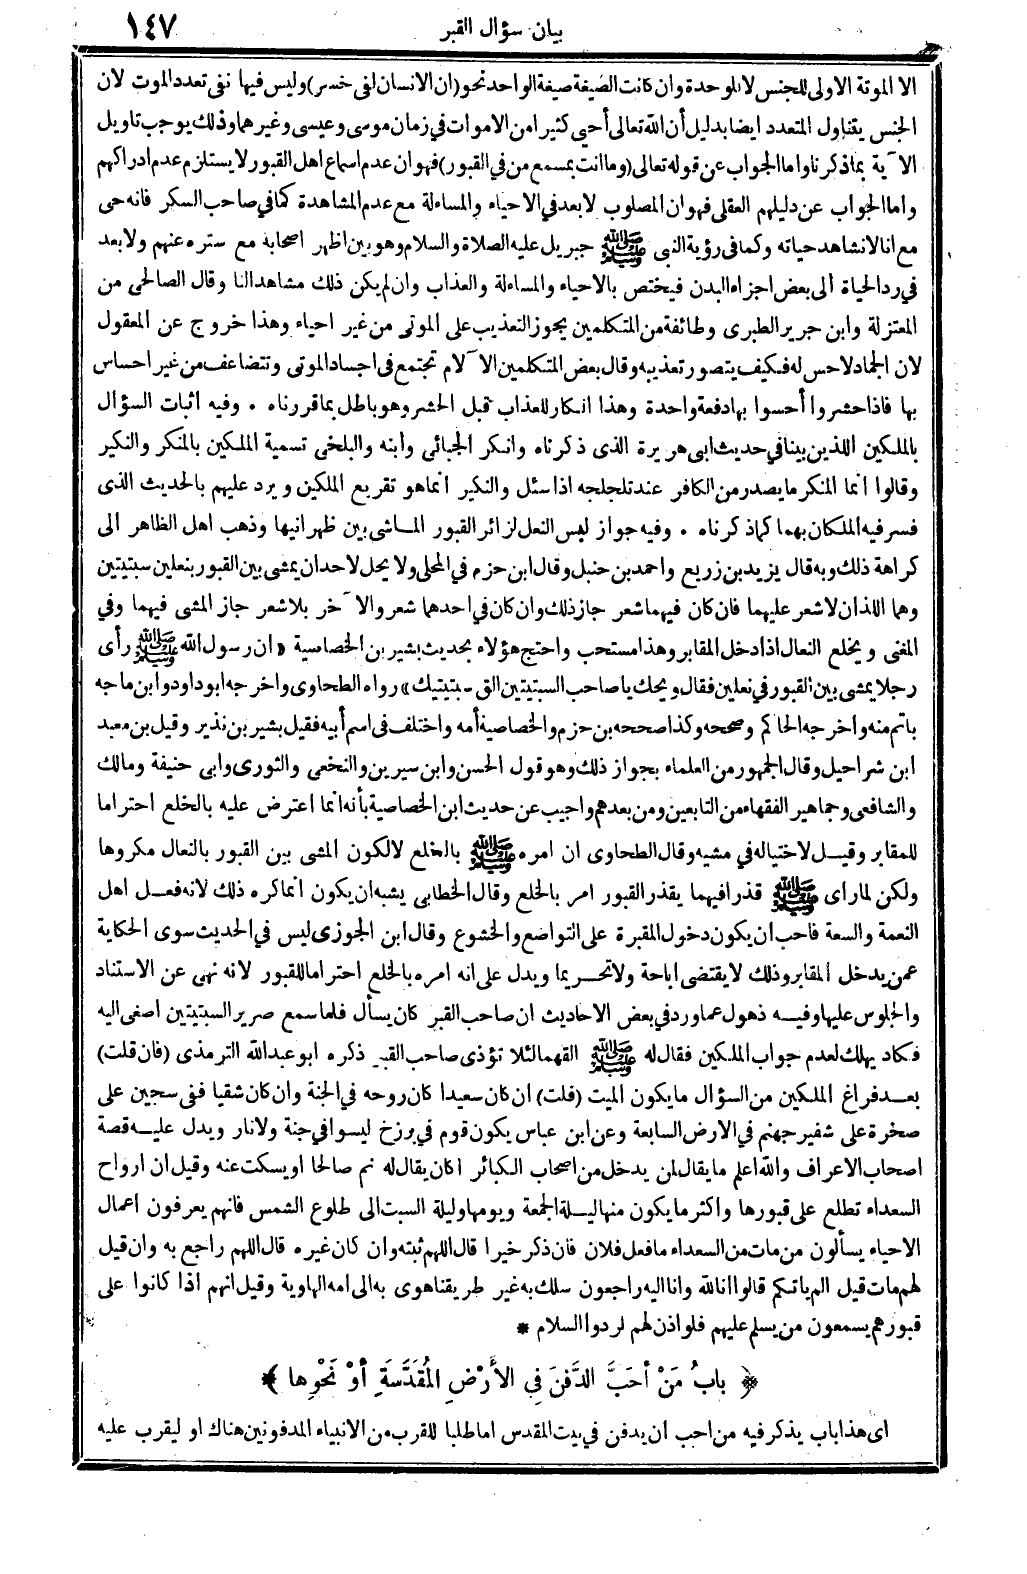 بيان سؤال القبر
١٤٧
الا الموتة الاولى للجنس لا للوحدة وان كانت الصيغة صيغة الواحد نحو (ان الانسان لفى خسر) وليس فيها نفى تعدد الموت لان
الجنس يتناول المتعدد ايضا بدليل أن الله تعالى أحيى كثيرا من الاموات في زمان موسى وعيسى وغيرهما وذلك يوجب تاويل
الآية بما ذكرنا واما الجواب عن قوله تعالى (وما انت بمسمع من في القبور) فهو ان عدم اسماع اهل القبور لا يستلزم عدم ادراكهم
واما الجواب عن دليلهم العقلى فهو ان المصلوب لا بعد في الاحياء والمساءلة مع عدم المشاهدة كما في صاحب السكر فانه حى
مع انا لا نشاهد حياته وكما فى رؤية النبى ﷺ جبريل عليه الصلاة والسلام وهو بين اظهر اصحابه مع ستره عنهم ولا بعد
في رد الحياة الى بعض اجزاء البدن فيختص بالاحياء والمساءلة والعذاب وان لم يكن ذلك مشاهدا لنا وقال الصالحى من
المعتزلة وابن جرير الطبرى وطائفة من المتكلمين يجوز التعذيب على الموتى من غير احياء وهذا خروج عن المعقول
لان الجماد لا حس له فكيف يتصور تعذيبه وقال بعض المتكلمين الآلام تجتمع فى اجساد الموتى وتتضاعف من غير احساس
بها فاذا حشروا أحسوا بها دفعة واحدة وهذا انكار للعذاب قبل الحشر وهو باطل بما قررناه . وفيه اثبات السؤال
بالملكين اللذين بينا في حديث ابى هريرة الذى ذكرناه وانكر الجبائى وابنه والبلخى تسمية الملكين بالمنكر والنكير
وقالوا انما المنكر ما يصدر من الكافر عند تلجلجه اذا سئل والنكير انما هو تقريع الملكين ويرد عليهم بالحديث الذى
فسر فيه الملكان بهما كما ذكرناه . وفيه جواز لبس النعل لزائر القبور الماشى بين ظهرانيها وذهب اهل الظاهر الى
كراهة ذلك وبه قال يزيد بن زريع واحمد بن حنبل وقال ابن حزم في المحلى ولا يحل لاحد ان يمشى بين القبور بنعلين سبتيتين
وهما اللذان لا شعر عليهما فان كان فيهما شعر جاز ذلك وان كان في احدهما شعر والآخر بلا شعر جاز المشى فيهما وفي
المغنى ويخلع النعال اذا دخل المقابر وهذا مستحب واحتج هؤلاء بحديث بشير بن الخصاصية «ان رسول الله ﷺ رأى
رجلا يمشى بين القبور في نعلين فقال ويحك يا صاحب السبتيتين الق سبتيتيك» رواه الطحاوى واخرجه ابو داود وابن ماجه
باتم منه واخرجه الحاكم وصححه وكذا صححه بن حزم والخصاصية أمه واختلف في اسم أبيه فقيل بشير بن نذير وقيل بن معبد
ابن شراحيل وقال الجمهور من العلماء بجواز ذلك وهو قول الحسن وابن سيرين والنخعى والثورى وابى حنيفة ومالك
والشافعى وجماهير الفقهاء من التابعين ومن بعدهم واجيب عن حديث ابن الخصاصية بأنه انما اعترض عليه بالخلع احتراما
للمقابر وقيل لاختياله في مشيه وقال الطحاوى ان امره ﷺ بالخلع لا لكون المشى بين القبور بالنعال مكروها
ولكن لما راى ﷺ قذرا فيهما يقذر القبور امر بالخلع وقال الخطابى يشبه ان يكون انما كره ذلك لانه فعل اهل
النعمة والسعة فاحب ان يكون دخول المقبرة على التواضع والخشوع وقال ابن الجوزى ليس في الحديث سوى الحكاية
عمن يدخل المقابر وذلك لا يقتضى اباحة ولا تحريما ويدل على انه امره بالخلع احتراما للقبور لانه نهى عن الاستناد
والجلوس عليها وفيه ذهول عما ورد في بعض الاحاديث ان صاحب القبر كان يسأل فلما سمع صرير السبتيتين اصغى اليه
فكاد يهلك لعدم جواب الملكين فقال له ﷺ القهما لئلا تؤذى صاحب القبر ذكره ابو عبد الله الترمذى (فان قلت)
بعد فراغ الملكين من السؤال ما يكون الميت (قلت) ان كان سعيدا كان روحه في الجنة وان كان شقيا ففى سجين على
صخرة على شفير جهنم في الارض السابعة وعن ابن عباس يكون قوم في برزخ ليسوا في جنة ولا نار ويدل عليه قصة
اصحاب الاعراف والله اعلم ما يقال لمن يدخل من اصحاب الكبائر اكان يقال له نم صالحا او يسكت عنه وقيل ان ارواح
السعداء تطلع على قبورها واكثر ما يكون منها ليلة الجمعة ويومها وليلة السبت الى طلوع الشمس فانهم يعرفون اعمال
الاحياء يسألون من مات من السعداء ما فعل فلان فان ذكر خيرا قال اللهم ثبته وان كان غيره قال اللهم راجع به وان قيل
لهم مات قيل الم ياتكم قالوا انا لله وانا اليه راجعون سلك به غير طريقنا هوى به الى امه الهاوية وقيل انهم اذا كانوا على
قبورهم يسمعون من يسلم عليهم فلو اذن لهم لردوا السلام *
﴿ بابُ مَنْ أحَبَّ الدَّفنَ فِي الأَرْضِ المُقَدَّسَةِ أوْ نَحْوِها ﴾
اى هذا باب يذكر فيه من احب ان يدفن في بيت المقدس اما طلبا للقرب من الانبياء المدفونين هناك او ليقرب عليه